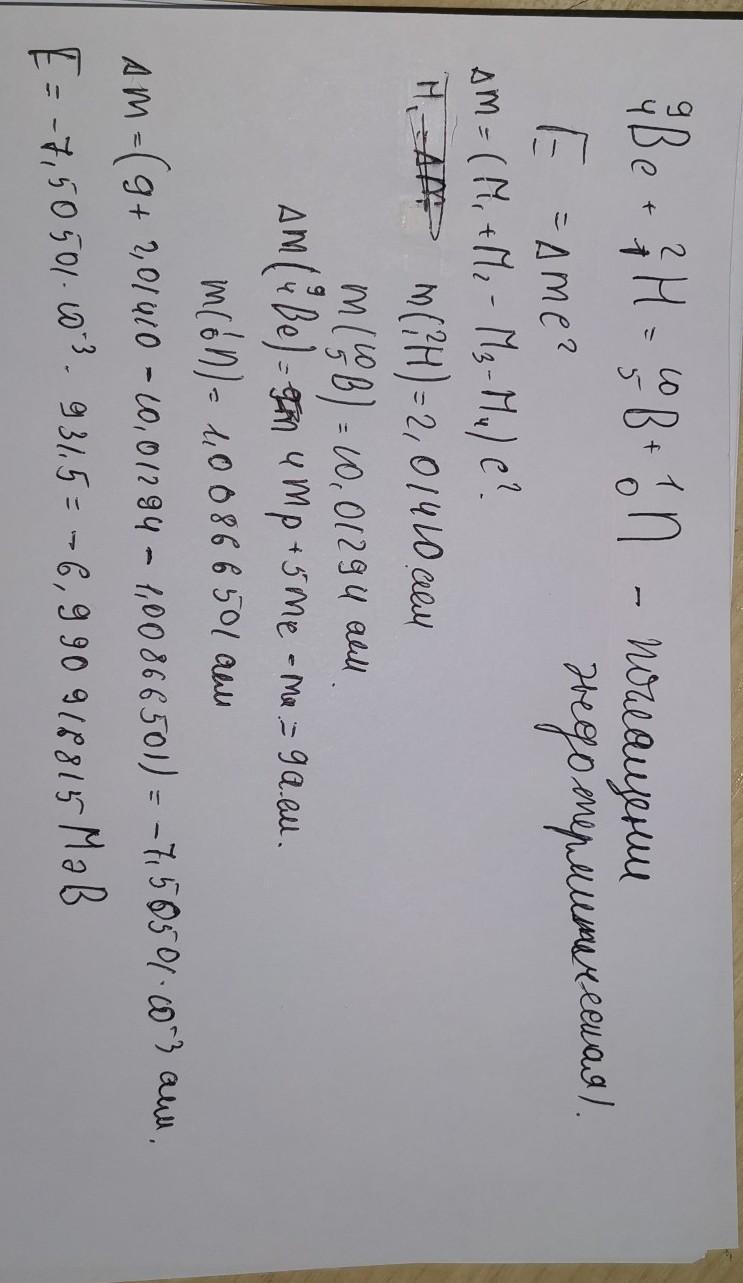 ⁹₄Be + ²₁H = ¹⁰₅B + ¹₀n – поглащении
эндотермитическая).
E = Δmc²
Δm = (M₁ + M₂ – M₃ – M₄) c².
m(²₁H) = 2,01410 аем
m(¹⁰₅B) = 10,01294 аем.
Δm(⁹₄Be) = 4mp + 5me – mя = 9а.ем.
m(¹₀n) = 1,008866501 аем
Δm = (9 + 2,01410 – 10,01294 – 1,008866501) = –7,50501·10⁻³ аем.
E = –7,50501·10⁻³ · 931,5 = –6,990918815 МэВ